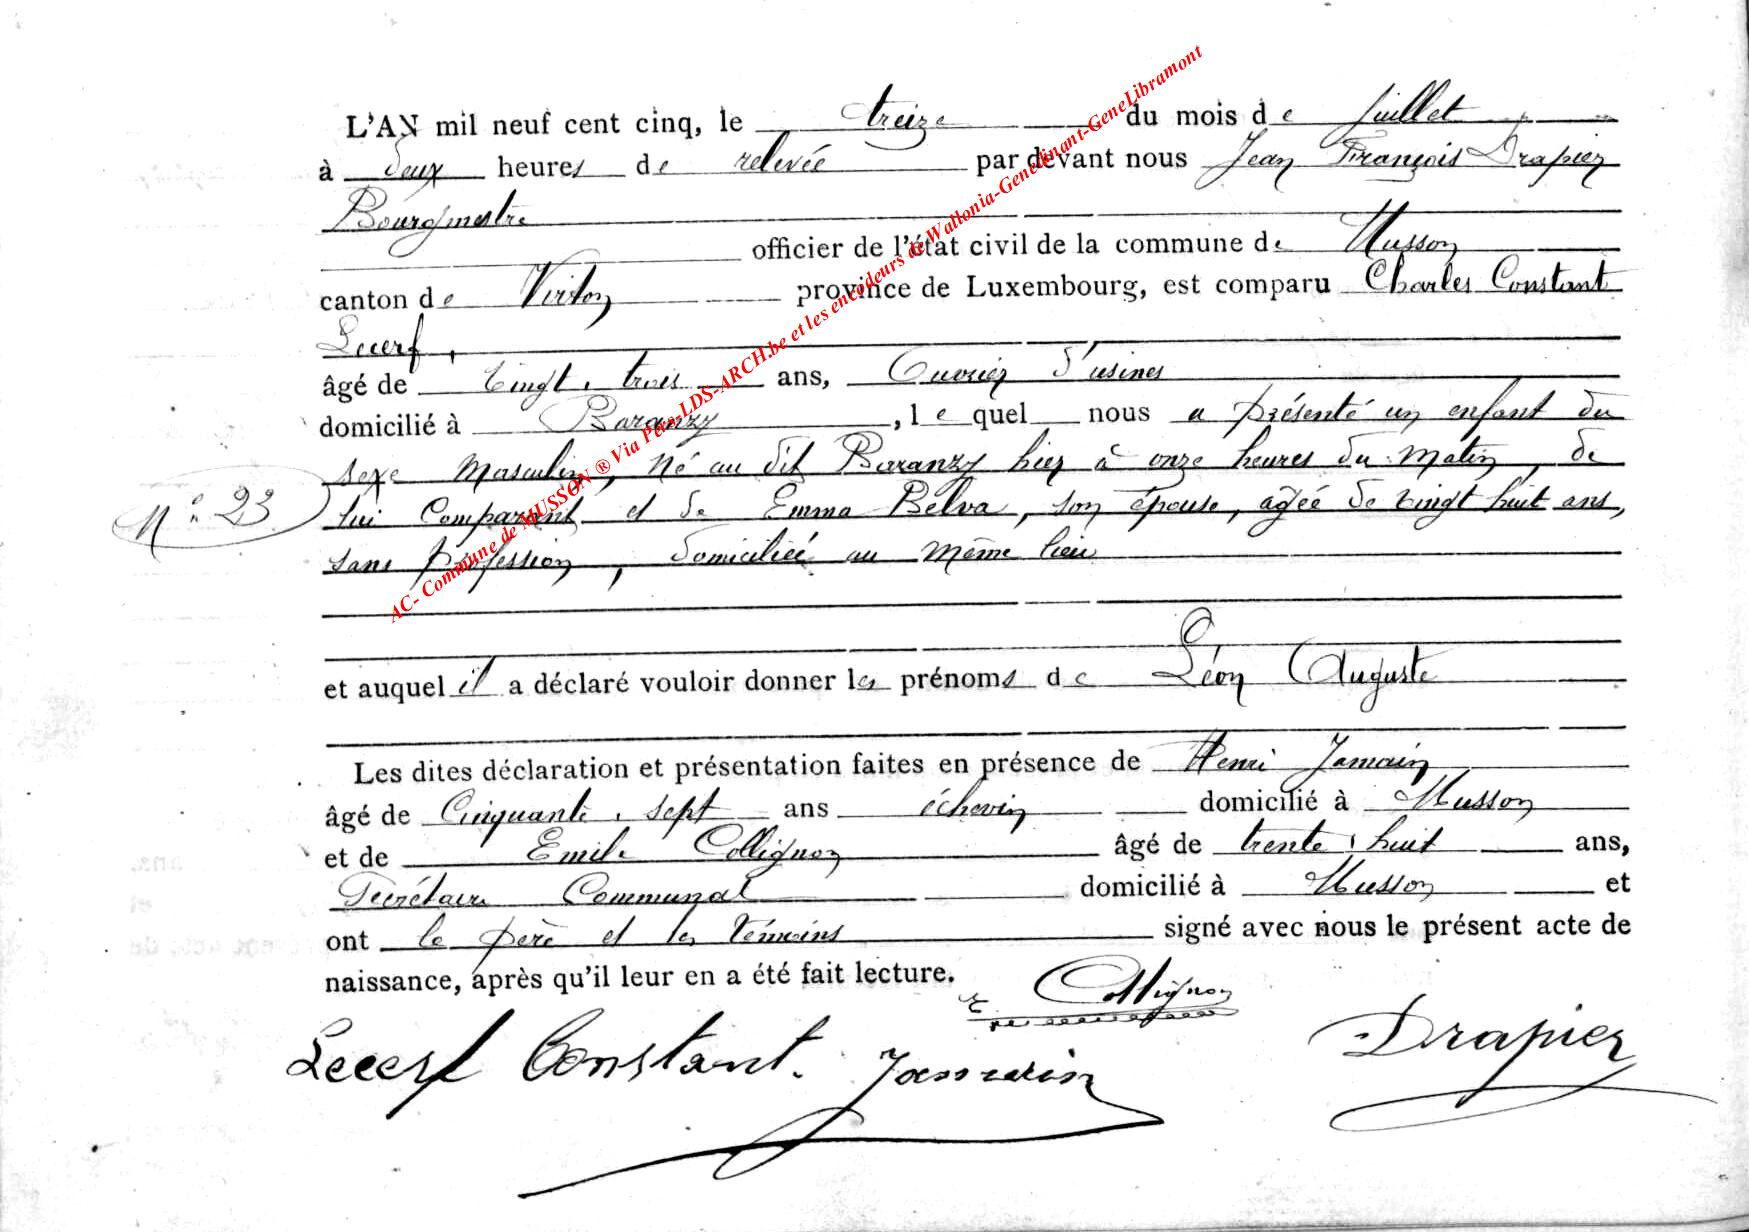 L'AN mil neuf cent cinq, le treize du mois de juillet
à deux heures de relevée par devant nous Jean François Drapier
Bourgmestre
officier de l'état civil de la commune de Musson
canton de Virton province de Luxembourg, est comparu Charles Constant
Lecerf,
âgé de vingt-trois ans, Ouvrier d'usines
domicilié à Baranzy, lequel nous a présenté un enfant du
sexe Masculin, né au dit Baranzy hier à onze heures du matin, de
N° 23
lui Comparant et de Emma Belva, son épouse, agée de vingt huit ans,
sans profession, domiciliée au même lieu
et auquel il a déclaré vouloir donner les prénoms de Léon Auguste
Les dites déclaration et présentation faites en présence de Henri Jamain
âgé de Cinquante-sept ans échevin domicilié à Musson
et de Emile Collignon âgé de trente-huit ans,
Secrétaire Communal domicilié à Musson et
ont le père et les témoins signé avec nous le présent acte de
naissance, après qu'il leur en a été fait lecture.
Collignon
Lecerf Constant. Jamain Drapier
AC- Commune de MUSSON ® Via Pere-LDS-ARCH.be et les encodeurs de Wallonia-Genedinant-GeneLibramont